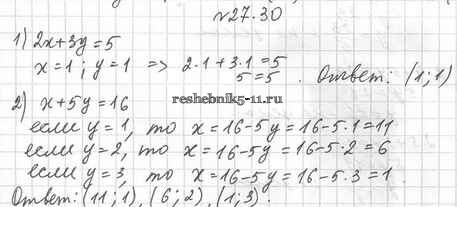 №27.30
1) 2x+3y=5
x=1; y=1 => 2·1+3·1=5
5=5. Ответ: (1;1)
2) x+5y=16
reshebnik5-11.ru
если y=1, то x=16-5y=16-5·1=11
если y=2, то x=16-5y=16-5·2=6
если y=3, то x=16-5y=16-5·3=1
Ответ: (11;1), (6;2), (1;3).